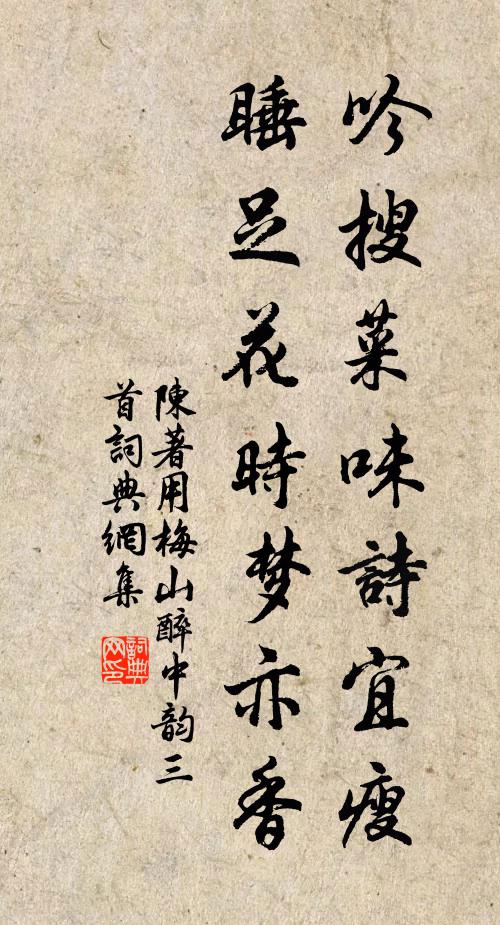 吟搜菜味詩宜瘦
睡足花時梦亦香
陳著用梅山醉中韵三
首詞典網集
詞典
网印